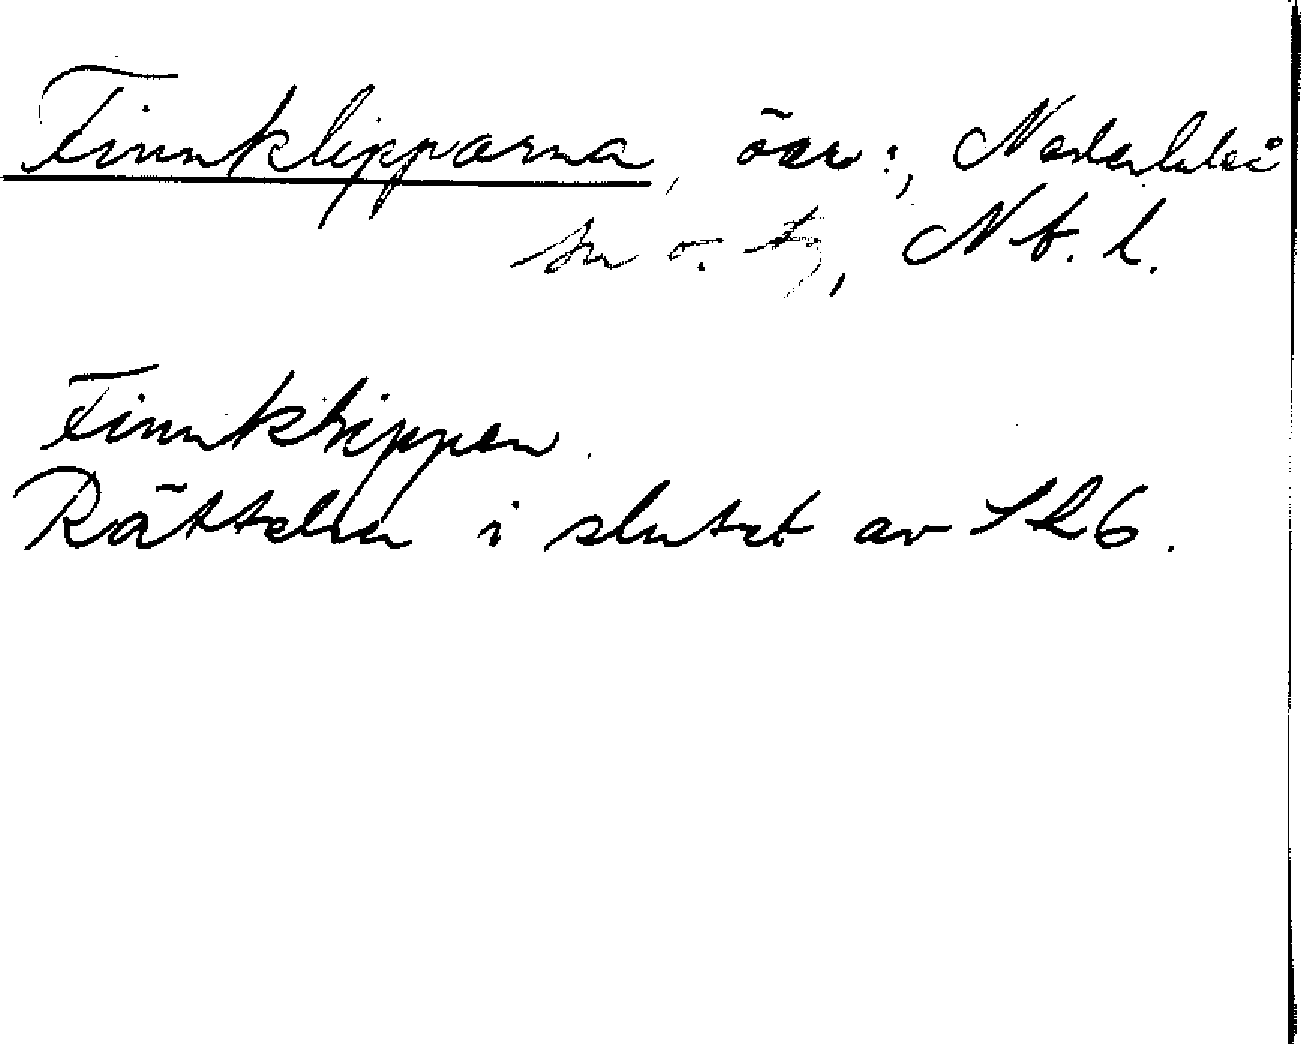 Finnklipporna, öar:, Nederluleå
sn o. tg, Nb. l.
Finnklippen.
Rättelser i slutet av SL6.